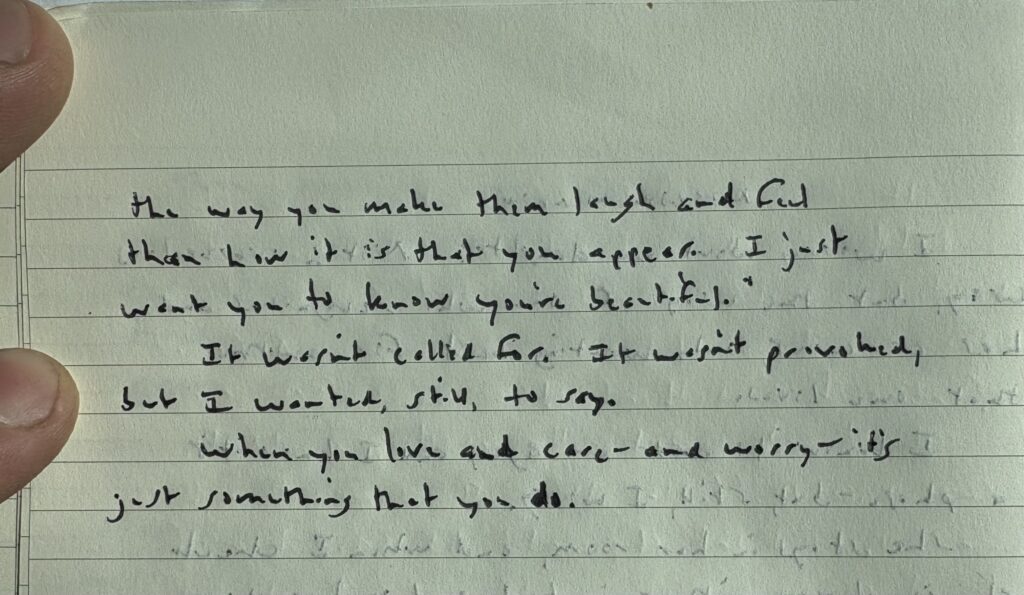 the way you make them laugh and feel
than how it is that you appear. I just
want you to know you're beautiful."
It wasn't called for. It wasn't provoked,
but I wanted, still, to say.
When you love and care—and worry—it's
just something that you do.